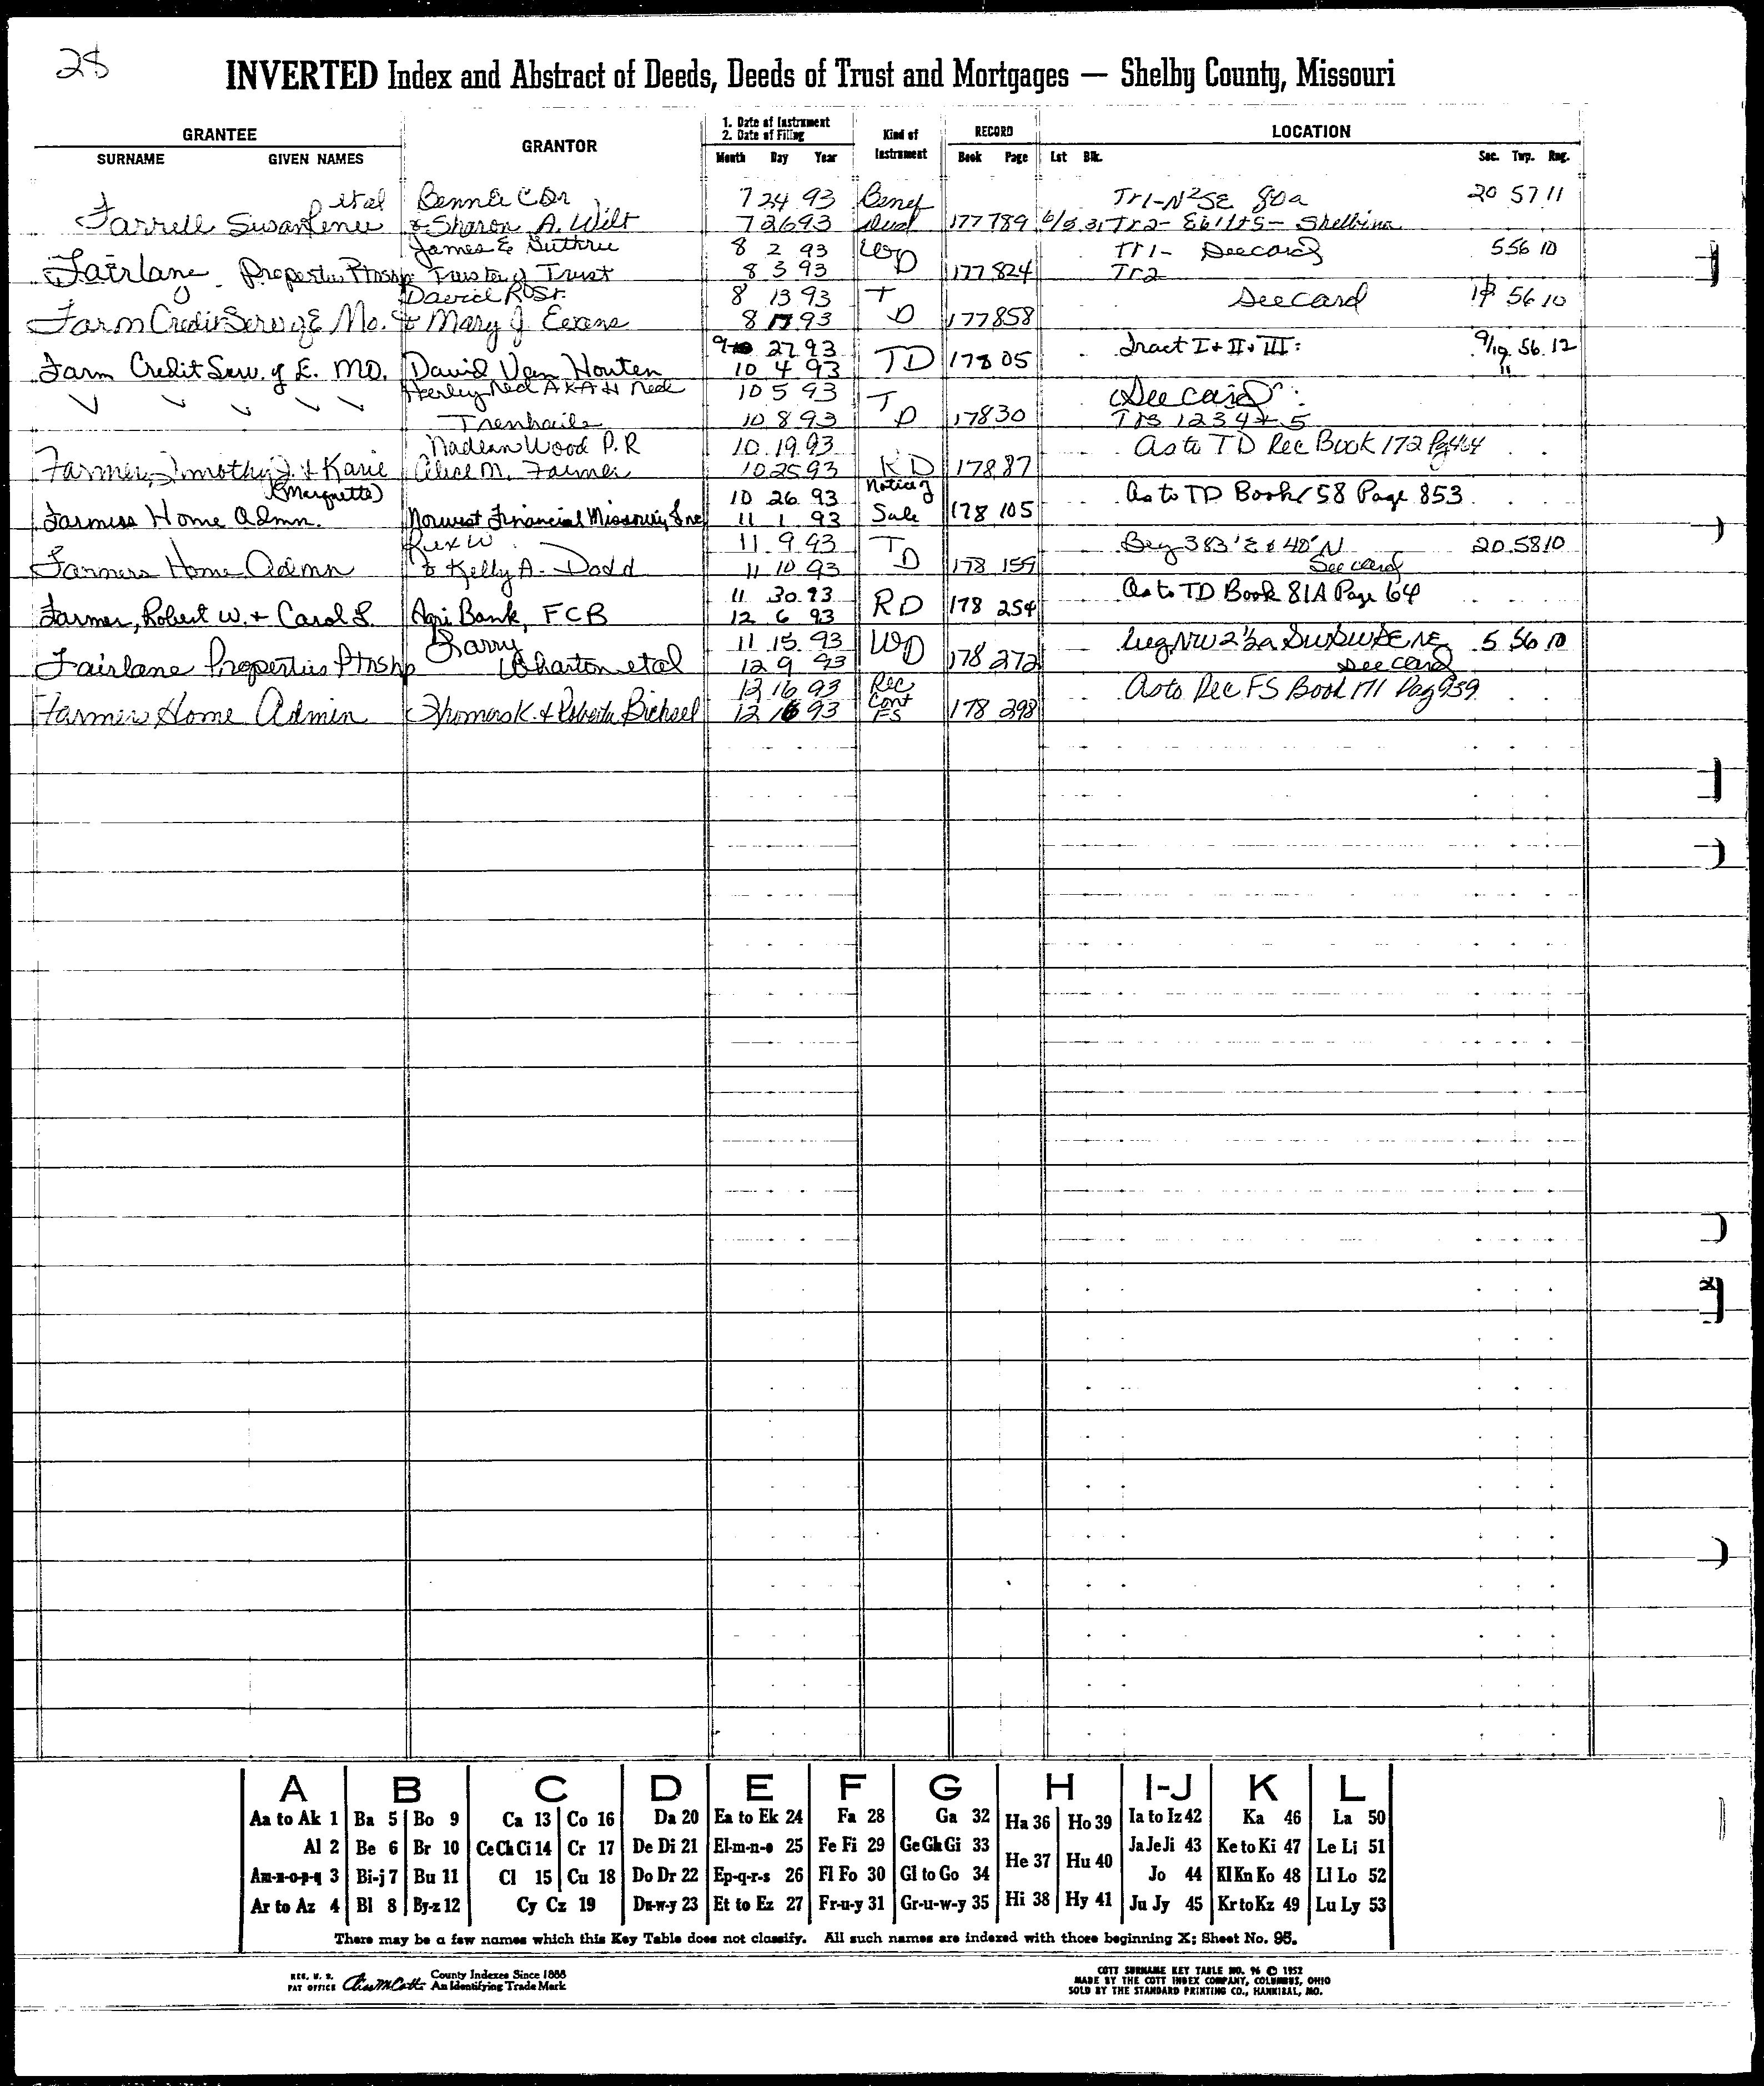 28
INVERTED Index and Abstract of Deeds, Deeds of Trust and Mortgages — Shelby County, Missouri
GRANTEE GRANTOR 1. Date of Instrument 2. Date of Filing Kind of Instrument RECORD LOCATION
SURNAME GIVEN NAMES Month Day Year Book Page Lot Blk. Sec. Twp. Rng.
et al 7 24 93 Benef Tr1-N2SE 80a 20 57 11
Farrell Susan & Sharon A. Wilt 7 26 93 Deed 177 789 Tr2- E611t5- Shelbina
James E Guthrie 8 2 93 WD Tr1- See card 5 56 10
Fairlane Properties Ptnshp Trustee of Trust 8 3 93 177 824 Tr2
David R Sr. 8 13 93 TD See card 56 10
Farm Credit Serv of E Mo. & Mary J Evans 8 17 93 177 858
9 27 93 Tract I + II + III: 9/10 56 12
Farm Credit Serv. of E. MO. David Van Houten 10 4 93 TD 178 05 11
Ned AKA H Ned 10 5 93 TD See card
Trenhaile 10 8 93 178 30 Trs 1 2 3 4 + 5
Nadean Wood P.R 10 19 93 As to TD Rec Book 172 Pg 464
Farmer, Timothy J. & Karie Alice M. Farmer 10 25 93 178 87
(Marquette) 10 26 93 Notice of As to TD Book 158 Page 853
Farmers Home Admn. Norwest Financial Missouri, Inc 11 1 93 Sale 178 105
Rex W 11 9 93 TD Beg 383' E & 40' N 20 58 10
Farmers Home Admn & Kelly A. Dodd 11 10 93 178 159 See card
11 30 93 As to TD Book 81A Page 64
Farmer, Robert W. + Carol L. Agri Bank, FCB 12 6 93 RD 178 254
Larry 11 15 93 WD Beg NW 2 1/2a SWSWSENE 5 56 10
Fairlane Properties Ptnshp Wharton et al 12 9 93 178 272 See card
12 16 93 Rec As to Rec FS Book 171 Pag 939
Farmers Home Admin Thomas K. & Roberta Bichsel 12 16 93 Cont FS 178 298
A B C D E F G H I-J K L
Aa to Ak 1 Ba 5 Bo 9 Ca 13 Co 16 Da 20 Ea to Ek 24 Fa 28 Ga 32 Ha 36 Ho 39 Ia to Iz 42 Ka 46 La 50
Al 2 Be 6 Br 10 Ce Ch Ci 14 Cr 17 De Di 21 El-m-n-o 25 Fe Fi 29 Ge Gh Gi 33 He 37 Hu 40 Ja Je Ji 43 Ke to Ki 47 Le Li 51
Am-n-o-p-q 3 Bi-j 7 Bu 11 Cl 15 Cu 18 Do Dr 22 Ep-q-r-s 26 Fl Fo 30 Gl to Go 34 Jo 44 Kl Kn Ko 48 Ll Lo 52
Ar to Az 4 Bl 8 By-z 12 Cy Cz 19 Du-w-y 23 Et to Ez 27 Fr-u-y 31 Gr-u-w-y 35 Hi 38 Hy 41 Ju Jy 45 Kr to Kz 49 Lu Ly 53
There may be a few names which this Key Table does not classify. All such names are indexed with those beginning X; Sheet No. 95.
REG. U. S. PAT OFFICE County Indexes Since 1888 An Identifying Trade Mark
COTT SURNAME KEY TABLE NO. 96 © 1952
MADE BY THE COTT INDEX COMPANY, COLUMBUS, OHIO
SOLD BY THE STANDARD PRINTING CO., HANNIBAL, MO.